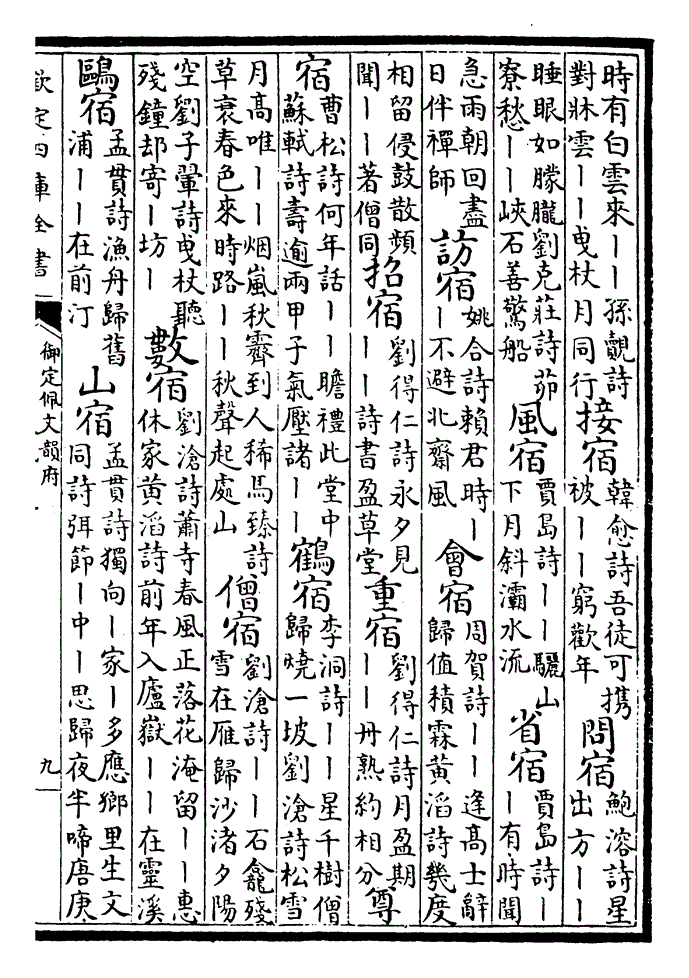 時有白雲來丨丨孫覿詩
對牀雲丨丨曵杖月同行
接宿
韓愈詩吾徒可攜
被丨丨窮歡年
問宿
鮑溶詩星
出方丨丨
睡眼如朦朧劉克莊詩茆
寮愁丨丨峽石善驚船
風宿
賈島詩丨丨驪山
下月斜灞水流
省宿
賈島詩丨
丨有時聞
急雨朝回盡
日伴禪師
訪宿
姚合詩賴君時丨
丨不避北齋風
會宿
周賀詩丨丨逢高士辭
歸值積霖黃滔詩幾度
相留侵鼓散頻
聞丨丨著僧同
招宿
劉得仁詩永夕見
丨丨詩書盈草堂
重宿
劉得仁詩月盈期
丨丨丹熟約相分
尊
宿
曹松詩何年話丨丨瞻禮此堂中
蘇軾詩壽逾兩甲子氣壓諸丨丨
鶴宿
李洞詩丨丨星千樹僧
歸燒一坡劉滄詩松雪
月高唯丨丨烟嵐秋霽到人稀馬臻詩
草衰春色來時路丨丨秋聲起處山
僧宿
劉滄詩丨丨石龕殘
雪在雁歸沙渚夕陽
空劉子翬詩曵杖聽
殘鐘却寄丨坊丨
數宿
劉滄詩蕭寺春風正落花淹留丨丨惠
休家黃滔詩前年入廬嶽丨丨在靈溪
鷗宿
孟貫詩漁舟歸舊
浦丨丨在前汀
山宿
孟貫詩獨向丨家丨多應鄉里生文
同詩弭節丨中丨思歸夜半啼唐庚
欽定四庫全書
御定佩文韻府
九